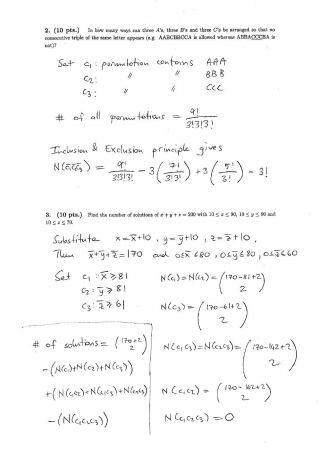 2. (10 pts.) In how many ways can three A's, three B's and three C's be arranged so that no
consecutive triple of the same letter appears (e.g. AABCBBCCA is allowed whereas ABBACCCBA is
not)?
Set c₁: permutation contains AAA
c₂: " " BBB
c₃: " " CCC
# of all permutations = 9!/3!3!3!
Inclusion & Exclusion principle gives
N(c̄₁c̄₂c̄₃) = 9!/3!3!3! - 3(7!/3!3!) + 3(5!/3!) - 3!
3. (10 pts.) Find the number of solutions of x + y + z = 200 with 10 ≤ x ≤ 90, 10 ≤ y ≤ 90 and
10 ≤ z ≤ 70.
Substitute x = x̄+10, y = ȳ+10, z = z̄+10.
Then x̄+ȳ+z̄ = 170 and 0≤x̄≤80, 0≤ȳ≤80, 0≤z̄≤60
Set c₁: x̄ ≥ 81 N(c₁) = N(c₂) = (170-81+2 2)
c₂: ȳ ≥ 81
c₃: z̄ ≥ 61 N(c₃) = (170-61+2 2)
# of solutions = (170+2 2) N(c₁c₃) = N(c₂c₃) = (170-142+2 2)
-(N(c₁)+N(c₂)+N(c₃))
+(N(c₁c₂)+N(c₁c₃)+N(c₂c₃)) N(c₁c₂) = (170-162+2 2)
-(N(c₁c₂c₃)) N(c₁c₂c₃) = 0